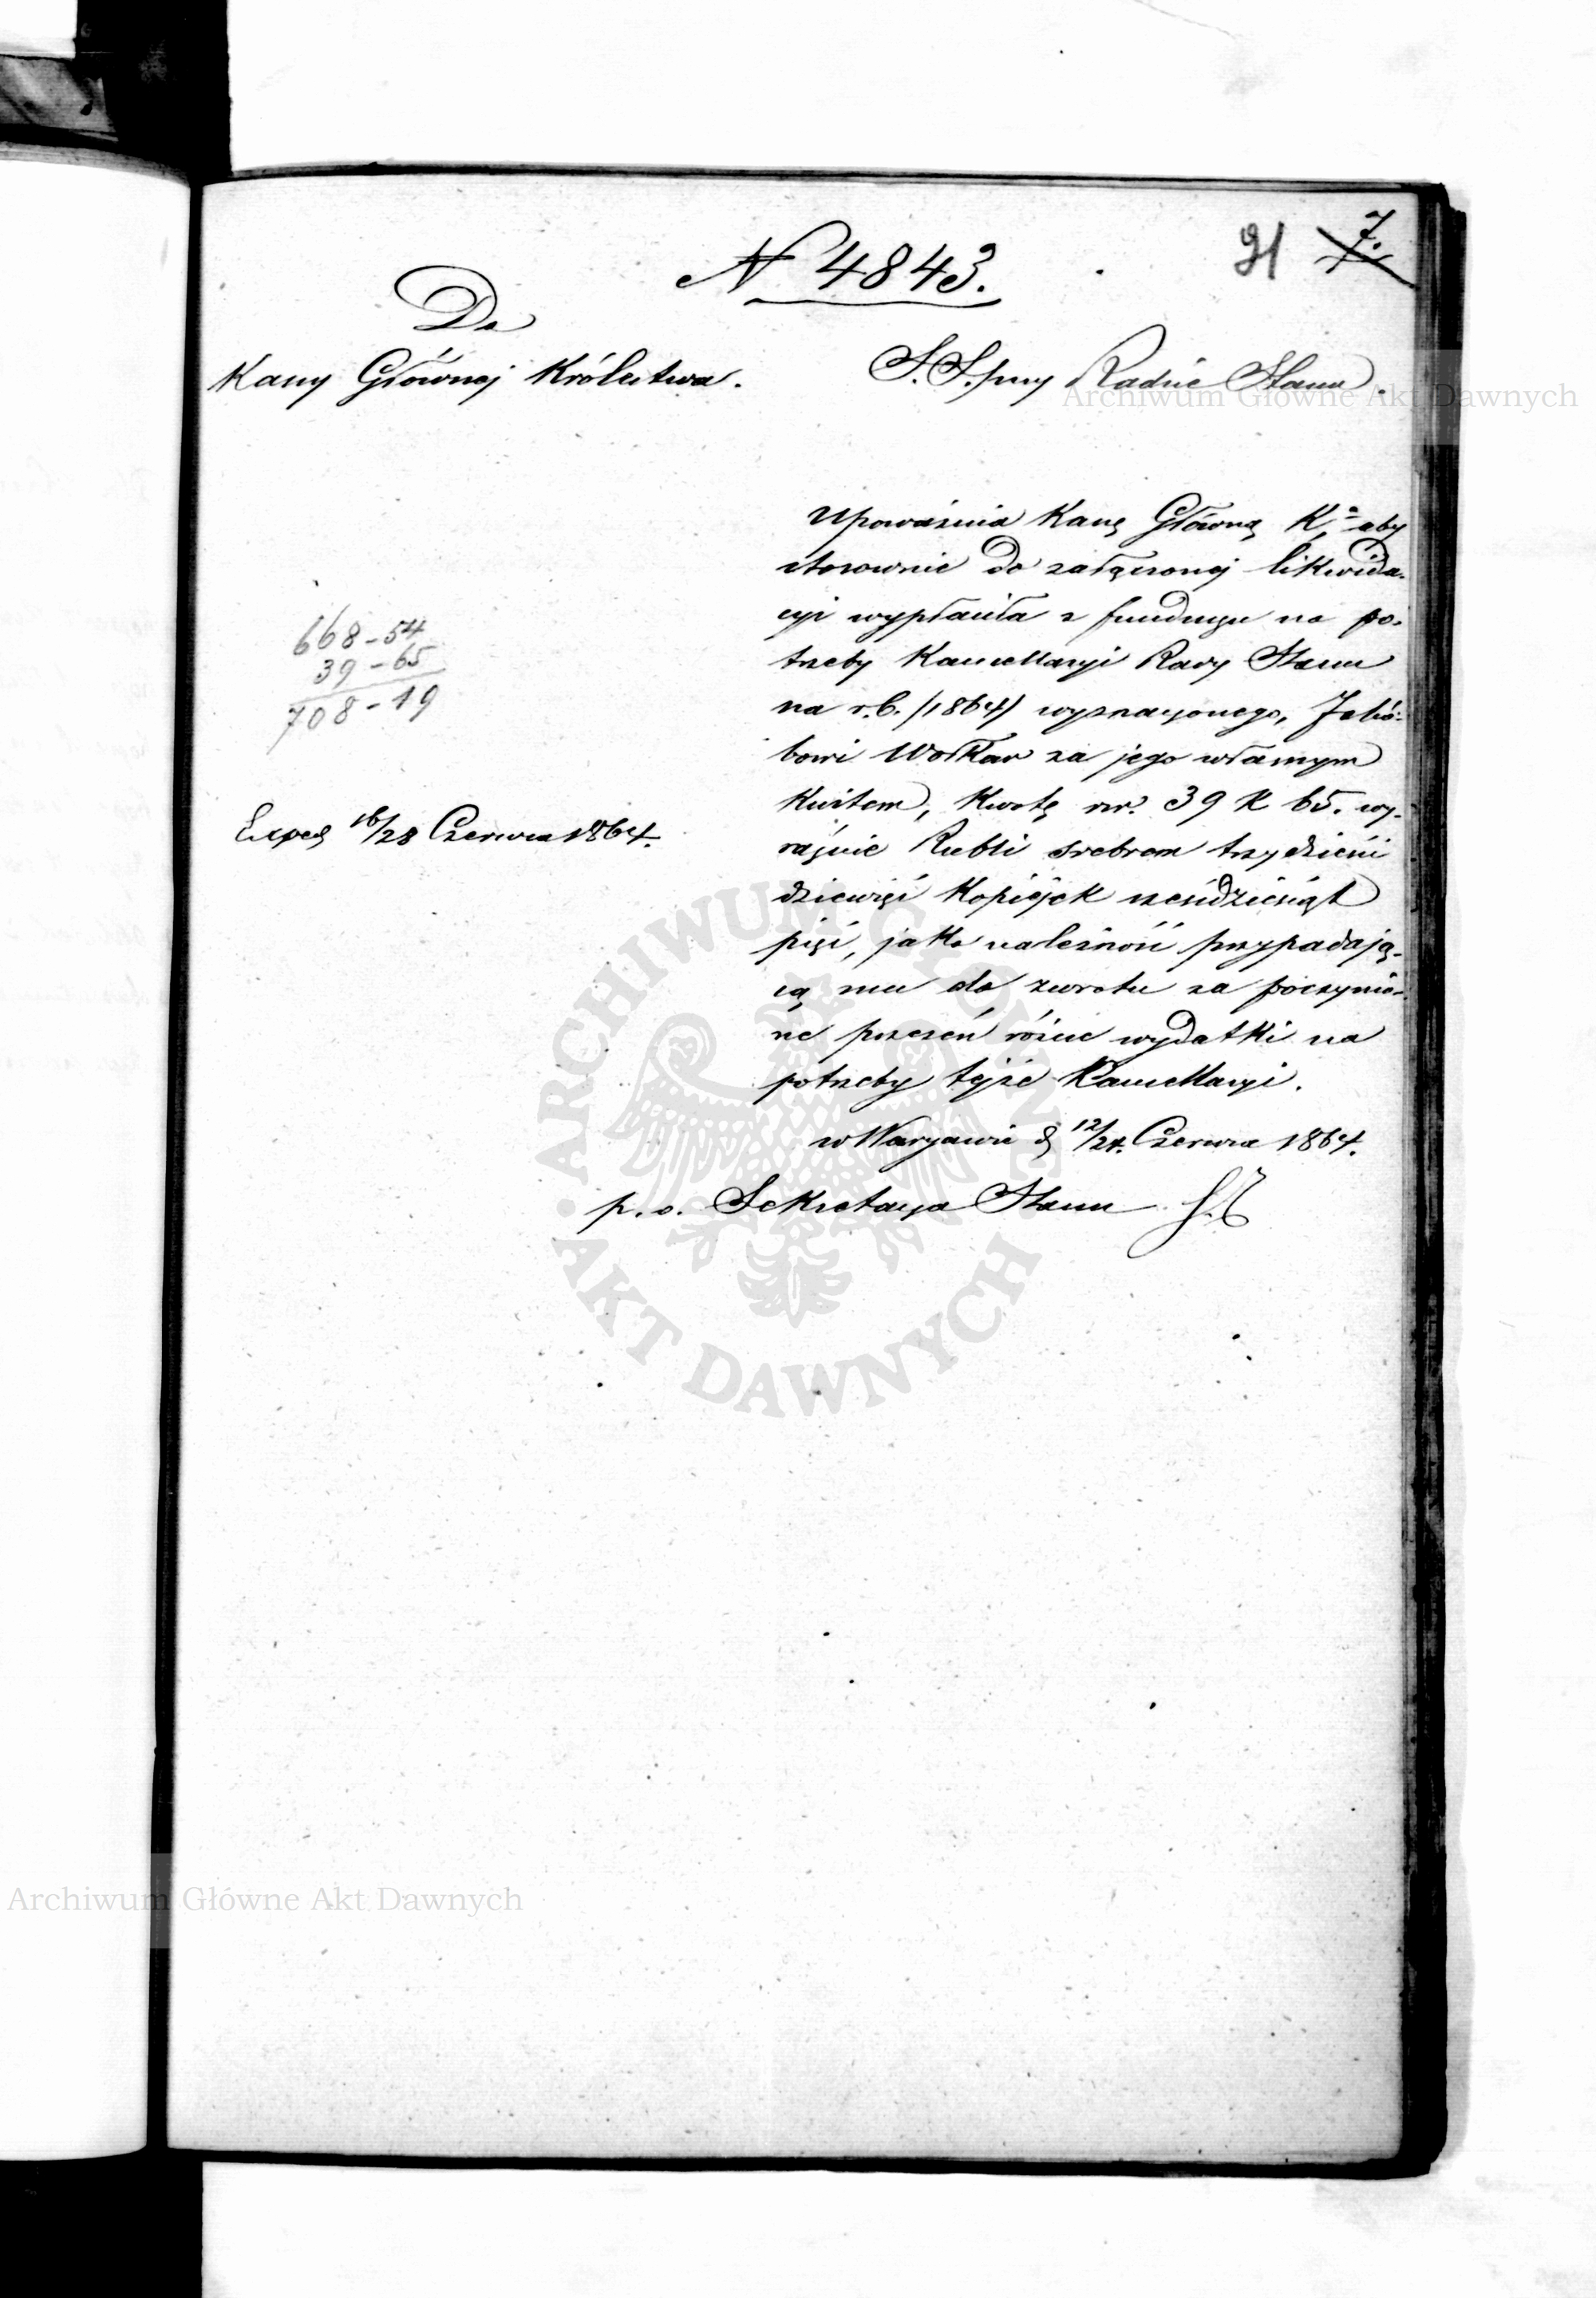 N 4843.
91 7.
Do
Kassy Głównej Królestwa.
S. S. przy Radzie Stanu.
Upoważnia Kassę Główną K. aby
stosownie do załączonej likwida-
cyi wypłaciła z funduszu na po-
trzeby Kancellaryi Rady Stanu
na r.b. /1864/ wyznaczonego, Jakó-
bowi Wołkow za jego własnym
Kwitem, Kwotę rsr. 39 K 65. wy-
raźnie Rubli srebrem trzydzieści
dziewięć Kopiejek sześćdziesiąt
pięć, jako należność przypadają-
cą mu do zwrotu za poczynio-
ne przezeń różne wydatki na
potrzeby tejże Kancellaryi.
w Warszawie d 12/24. Czerwca 1864.
p. o. Sekretarza Stanu
668-54
39-65
708-19
Exped 16/28 Czerwca 1864.
Archiwum Główne Akt Dawnych
ARCHIWUM GŁÓWNE AKT DAWNYCH
Archiwum Główne Akt Dawnych